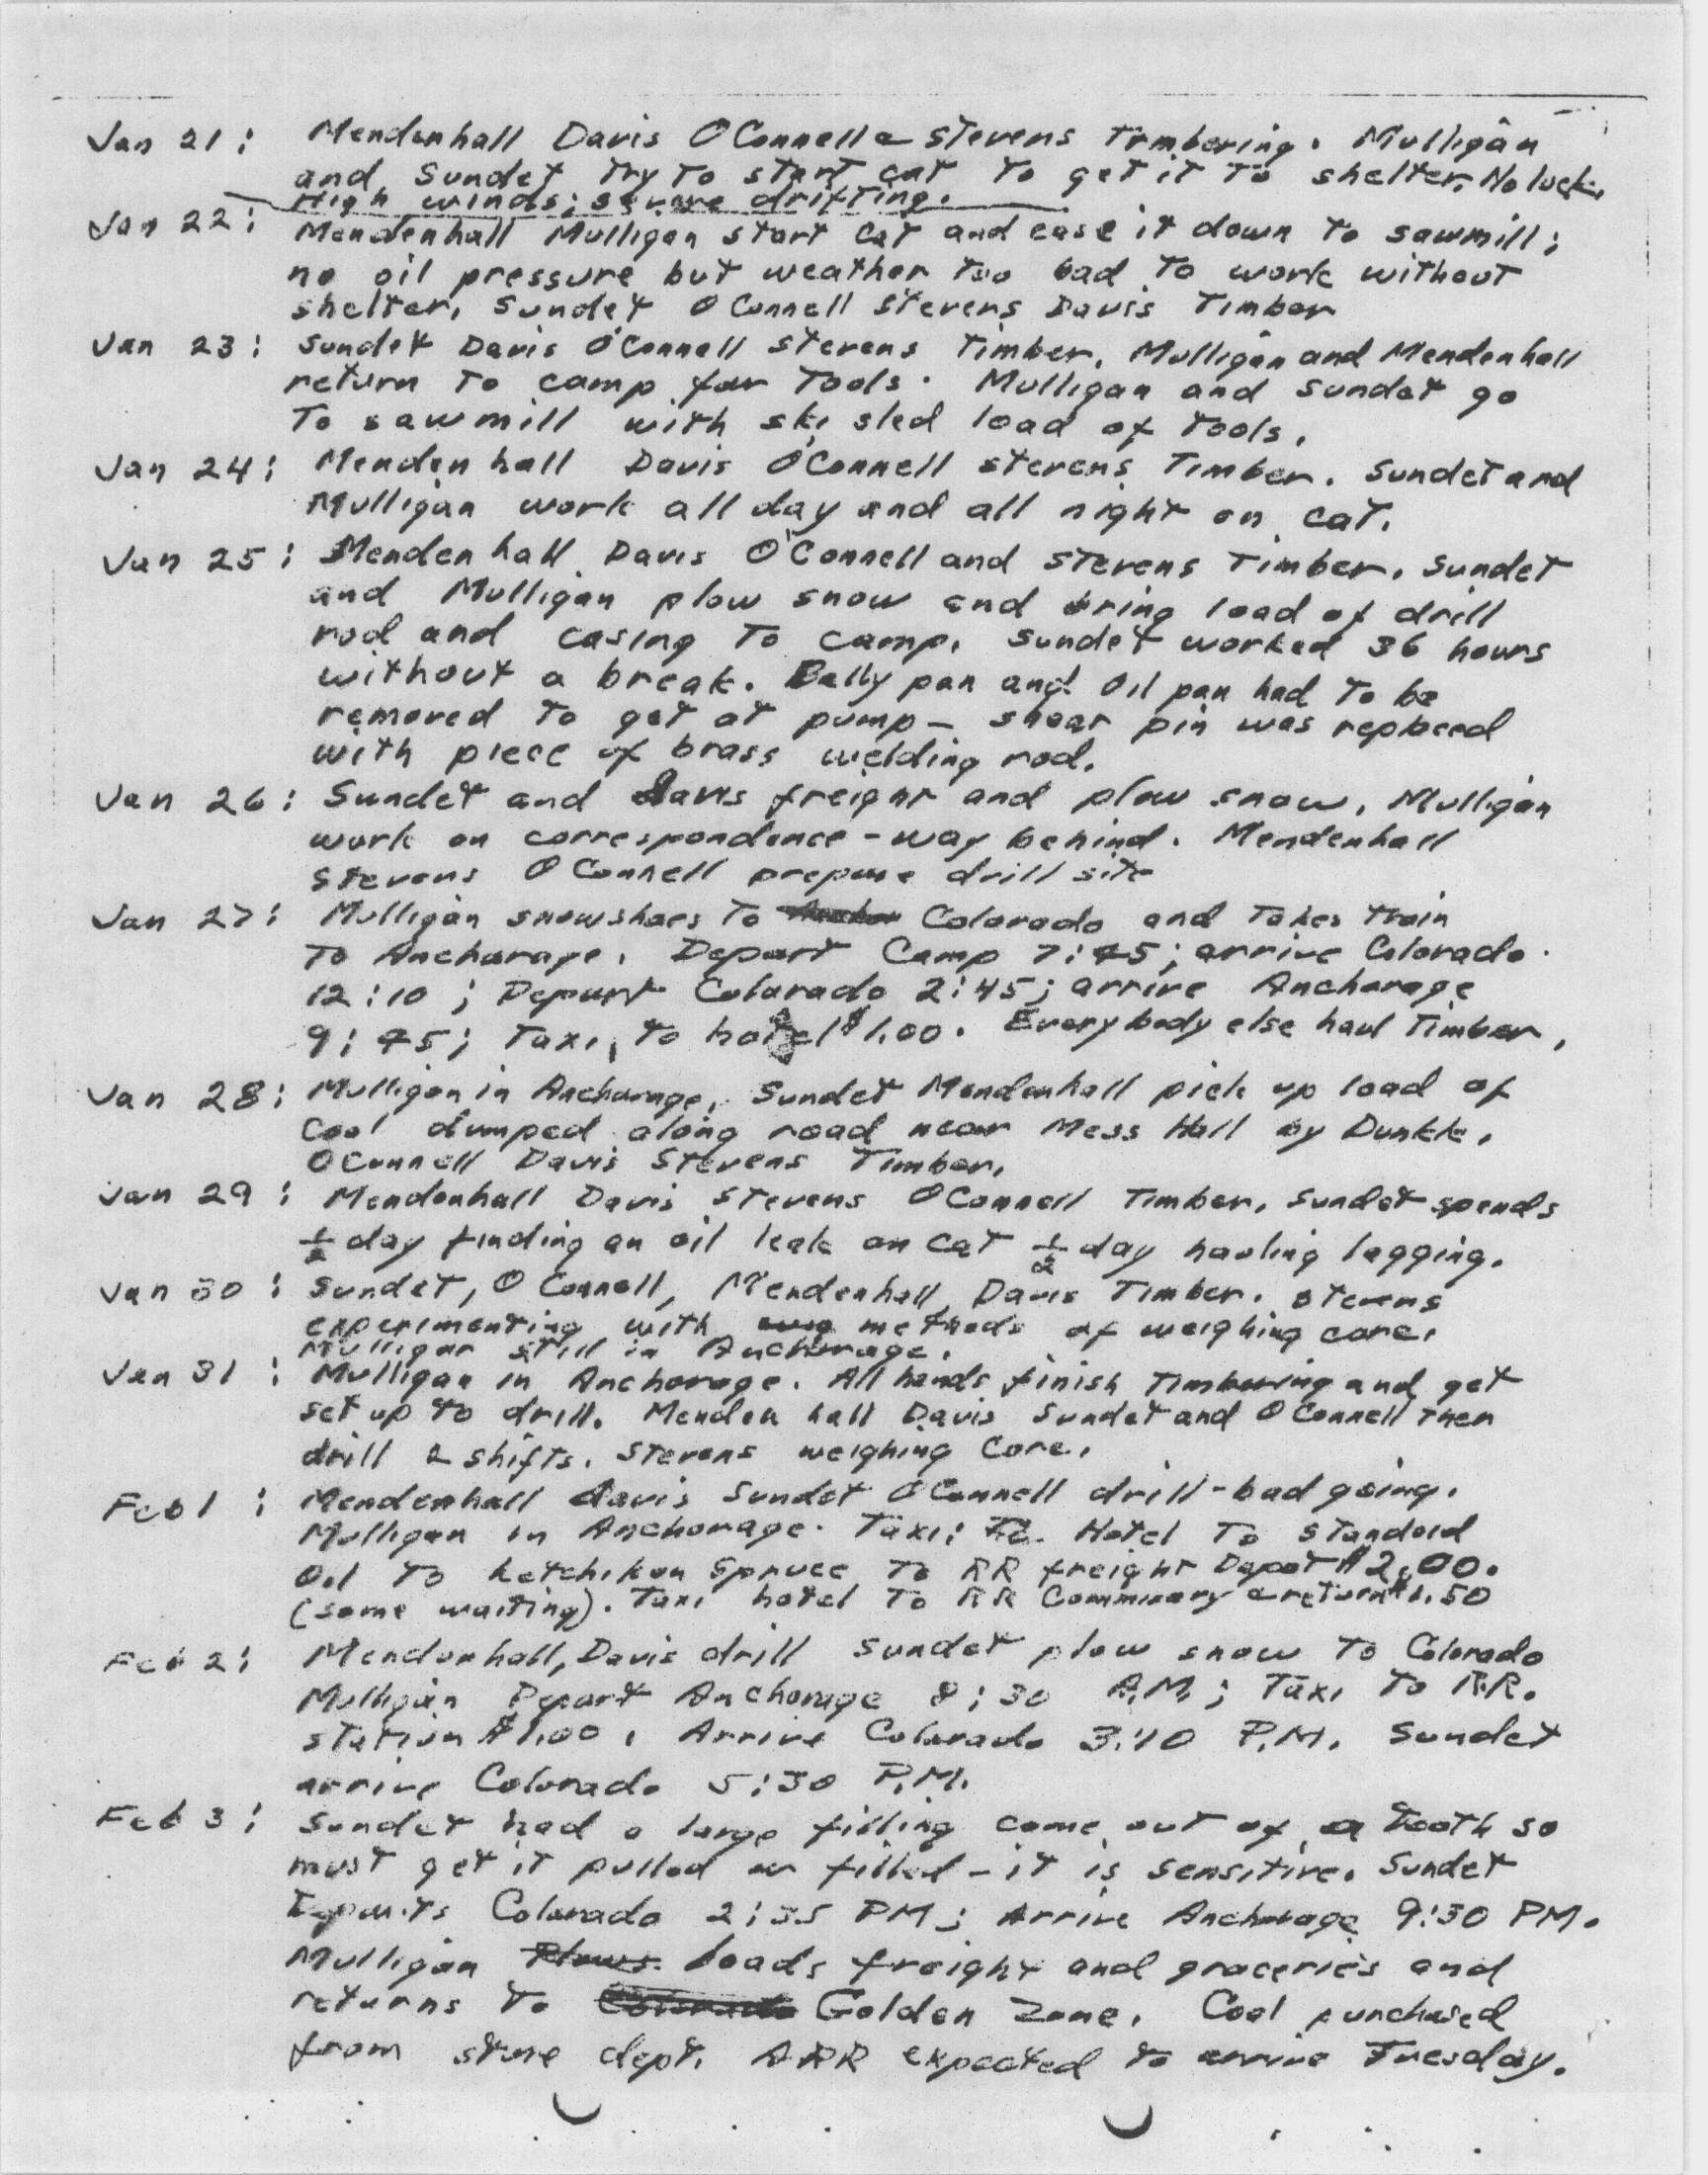 Jan 21: Mendenhall Davis O'Connell & Stevens Timbering. Mulligan
and Sundet try to start cat to get it to shelter. No luck.
High winds; severe drifting.
Jan 22: Mendenhall Mulligan start Cat and ease it down to sawmill;
no oil pressure but weather too bad to work without
shelter. Sundet O'Connell Stevens Davis Timber
Jan 23: Sundet Davis O'Connell Stevens Timber. Mulligan and Mendenhall
return to camp for tools. Mulligan and Sundet go
to sawmill with ski sled load of tools.
Jan 24: Mendenhall Davis O'Connell Stevens Timber. Sundet and
Mulligan work all day and all night on cat.
Jan 25: Mendenhall Davis O'Connell and Stevens Timber. Sundet
and Mulligan plow snow and bring load of drill
rod and casing to camp. Sundet worked 36 hours
without a break. Belly pan and oil pan had to be
removed to get at pump - shear pin was replaced
with piece of brass welding rod.
Jan 26: Sundet and Davis freight and plow snow. Mulligan
work on correspondence - way behind. Mendenhall
Stevens O'Connell prepare drill site
Jan 27: Mulligan snowshoes to Colorado and takes train
to Anchorage. Depart Camp 7:45; arrive Colorado
12:10; Depart Colorado 2:45; arrive Anchorage
9:45; Taxi to hotel $1.00. Everybody else haul Timber.
Jan 28: Mulligan in Anchorage. Sundet Mendenhall pick up load of
coal dumped along road near Mess Hall by Dunkle.
O'Connell Davis Stevens Timber.
Jan 29: Mendenhall Davis Stevens O'Connell Timber. Sundet spends
½ day finding an oil leak on cat ½ day hauling lagging.
Jan 30: Sundet, O'Connell, Mendenhall, Davis Timber. Stevens
experimenting with methods of weighing core.
Mulligan still in Anchorage.
Jan 31: Mulligan in Anchorage. All hands finish Timbering and get
set up to drill. Mendenhall Davis Sundet and O'Connell then
drill 2 shifts. Stevens weighing Core.
Feb 1: Mendenhall Davis Sundet O'Connell drill - bad going.
Mulligan in Anchorage. Taxi: Hotel to Standard
Oil to Ketchikan Spruce to RR freight Depot $2.00.
(some waiting). Taxi hotel to RR Commissary & return $1.50
Feb 2: Mendenhall, Davis drill Sundet plow snow to Colorado
Mulligan Depart Anchorage 8:30 A.M.; Taxi to R.R.
station $1.00. Arrive Colorado 3:10 P.M. Sundet
arrive Colorado 5:30 P.M.
Feb 3: Sundet had a large filling come out of a tooth so
must get it pulled or filled - it is sensitive. Sundet
Departs Colorado 2:35 PM; Arrive Anchorage 9:30 PM.
Mulligan loads freight and groceries and
returns to Golden Zone. Coal purchased
from store dept. ARR expected to arrive Tuesday.